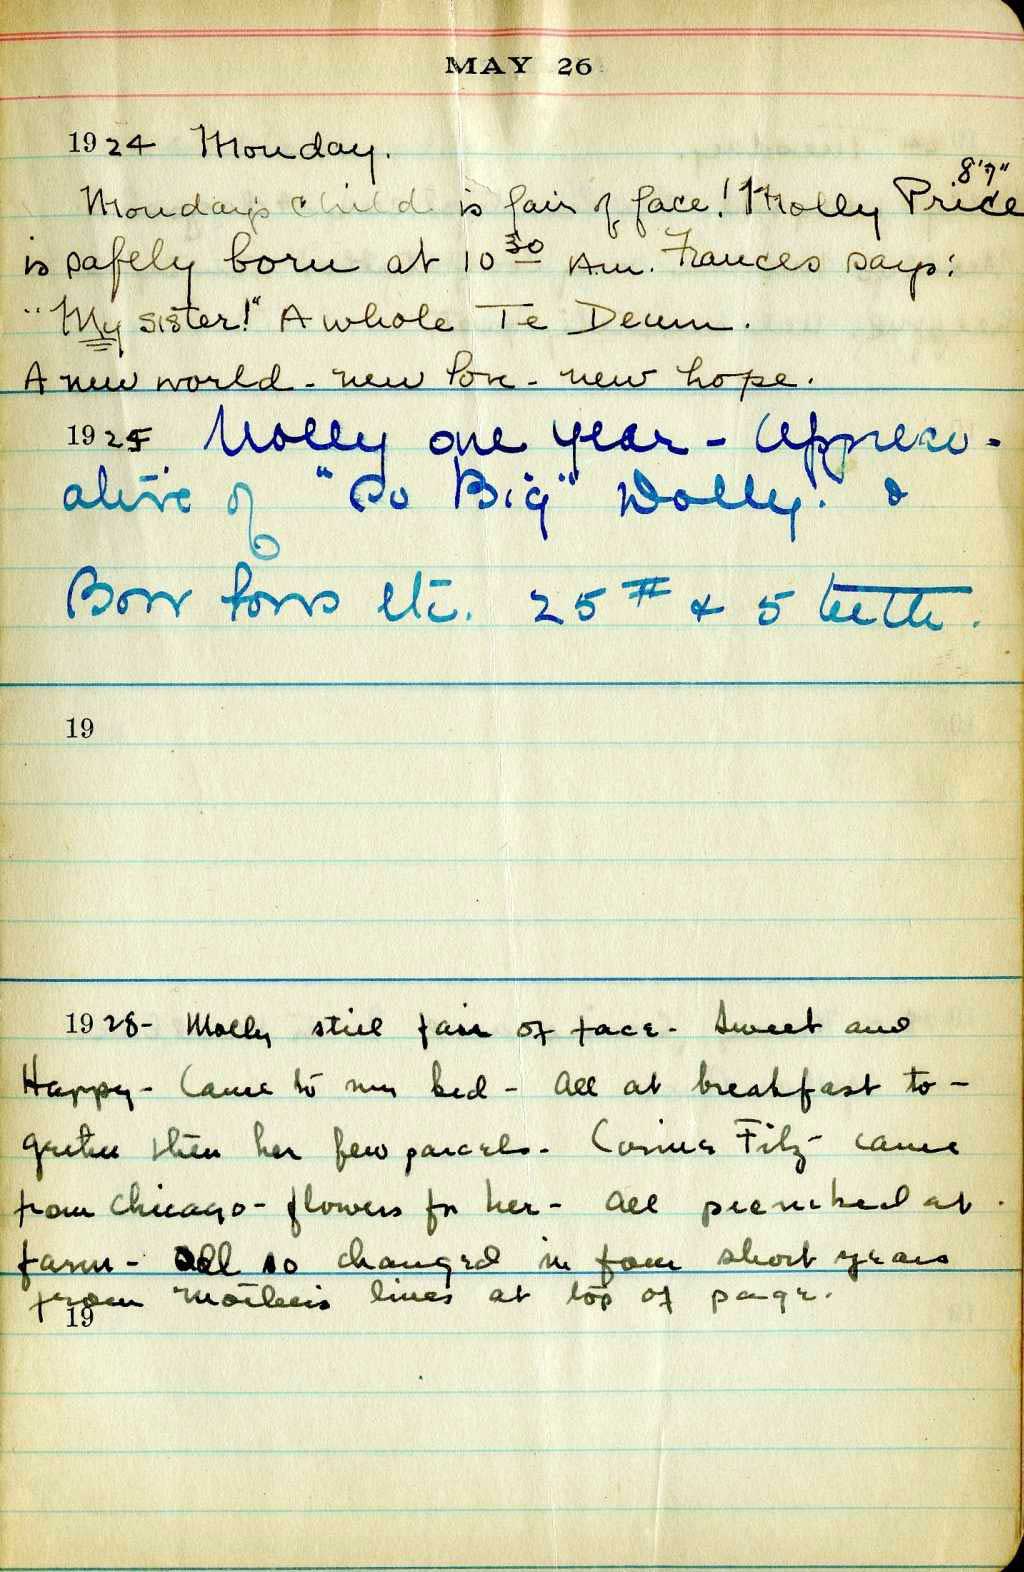 MAY 26
1924 Monday.
8'7"
Monday's child is fair of face! Molly Price
is safely born at 10 30 Am. Frances says:
"My sister!" A whole Te Deum.
A new world - new love - new hope.
1925 Molly one year - Apprecia-
ative of "So Big" Dolly! &
Bow wows etc. 25 # & 5 teeth.
19
1928- Molly still fair of face - Sweet and
Happy - Came to my bed - All at breakfast to-
gether then her few parcels - Fitz - came
from Chicago - flowers for her - All picnicked at
farm - All so changed in four short years
from Mother's lines at top of page.
19